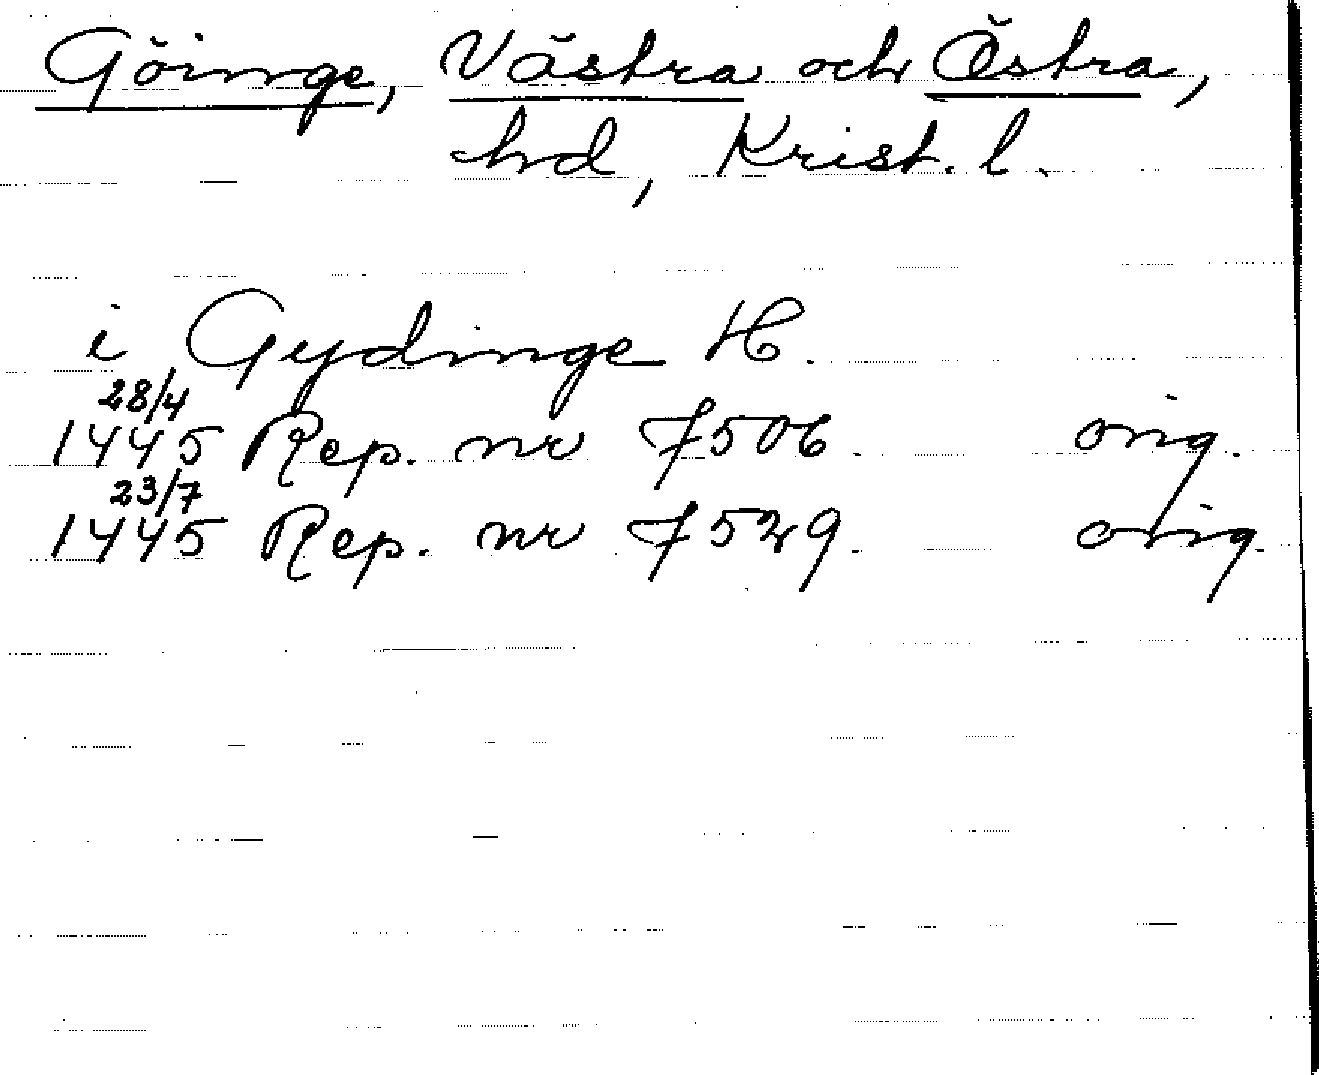 Göinge, Västra och Östra,
hd, Krist. l.
i Gydinge H.
28/4
1445 Rep. nr 7506. orig.
23/7
1445 Rep. nr 7529. orig.